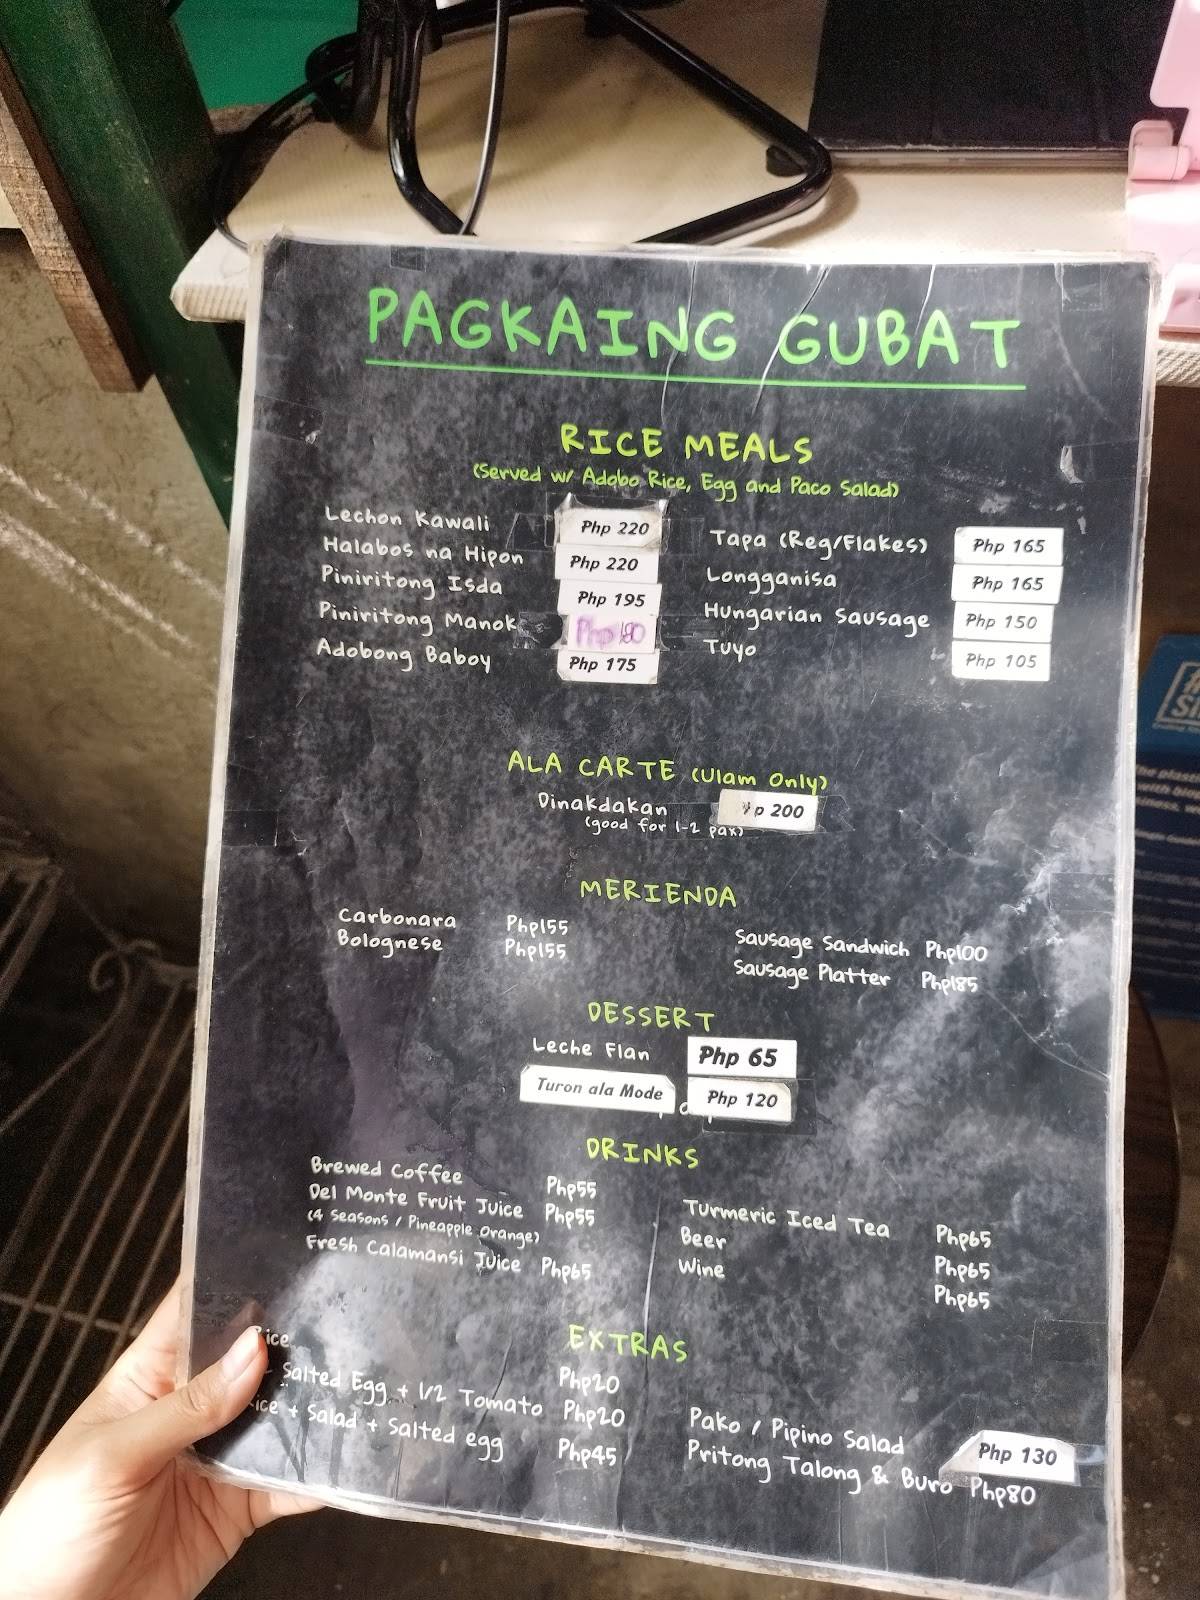 PAGKAING GUBAT
RICE MEALS
(Served w/ Adobo Rice, Egg and Paco Salad)
Lechon Kawali Php 220
Halabos na Hipon Php 220
Piniritong Isda Php 195
Piniritong Manok Php 180
Adobong Baboy Php 175
Tapa (Reg/Flakes) Php 165
Longganisa Php 165
Hungarian Sausage Php 150
Tuyo Php 105
ALA CARTE (Ulam Only)
Dinakdakan p 200
(good for 1-2 pax)
MERIENDA
Carbonara Php155
Bolognese Php155
Sausage Sandwich Php100
Sausage Platter Php185
DESSERT
Leche Flan Php 65
Turon ala Mode Php 120
DRINKS
Brewed Coffee Php55
Del Monte Fruit Juice Php55
(4 Seasons / Pineapple Orange)
Fresh Calamansi Juice Php65
Turmeric Iced Tea Php65
Beer Php65
Wine Php65
EXTRAS
Rice Php20
Salted Egg + 1/2 Tomato Php20
ice + Salad + Salted egg Php45
Pako / Pipino Salad Php 130
Pritong Talong & Buro Php80